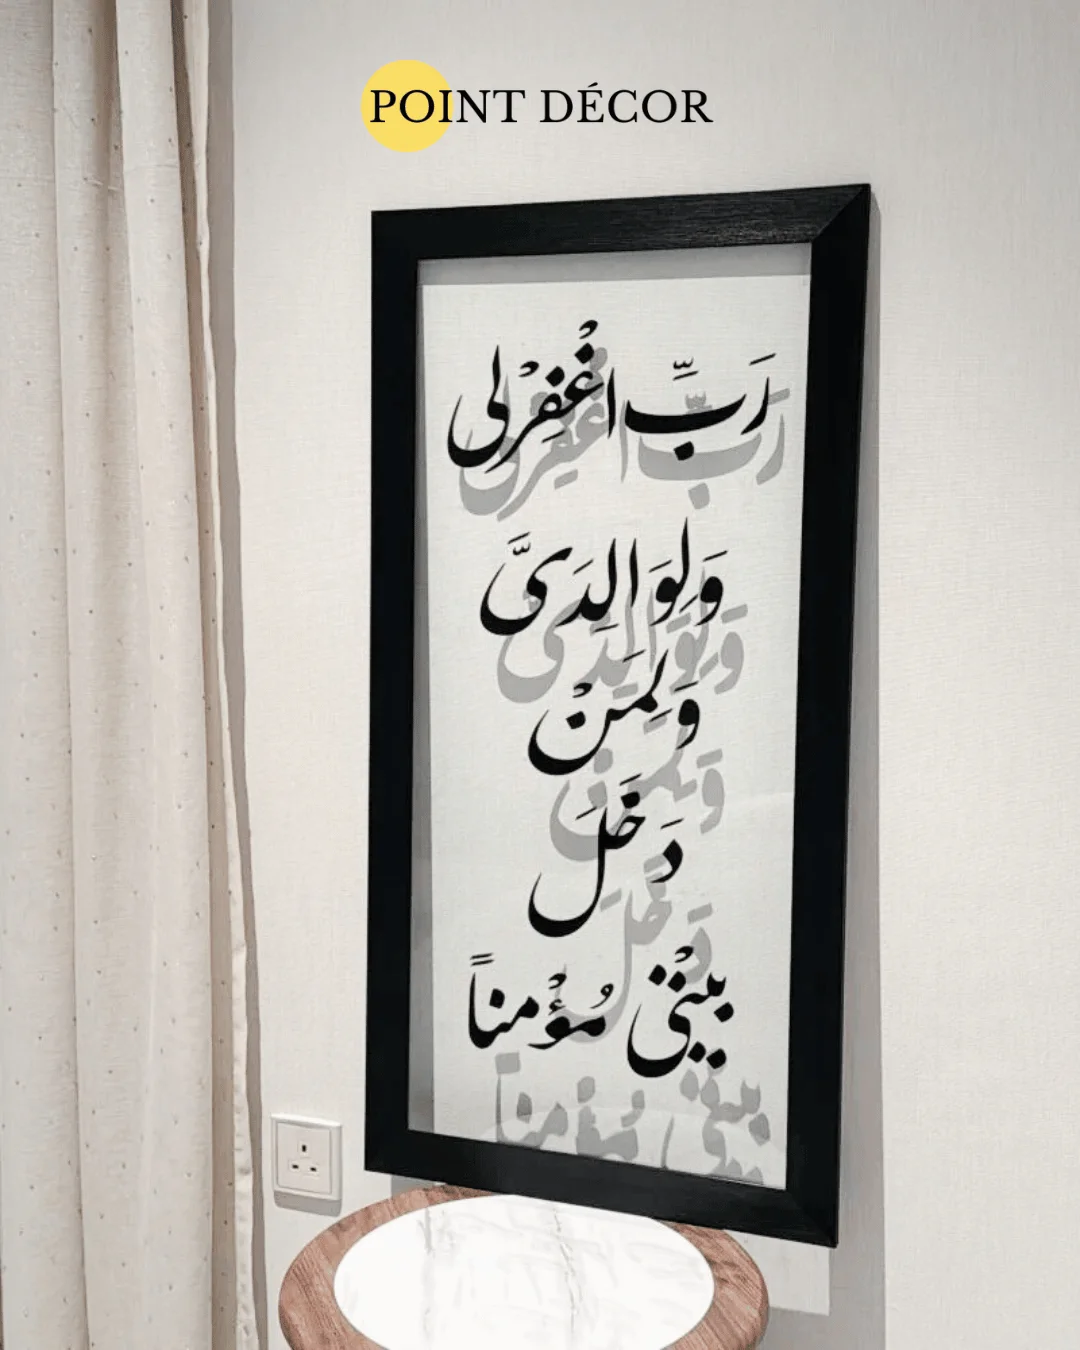 POINT DÉCOR
رَبِّ اغْفِرْلى
وَلِوَالِدَىَّ
وَلِمَنْ
دَخَلَ
بيْتى مُؤْمناً